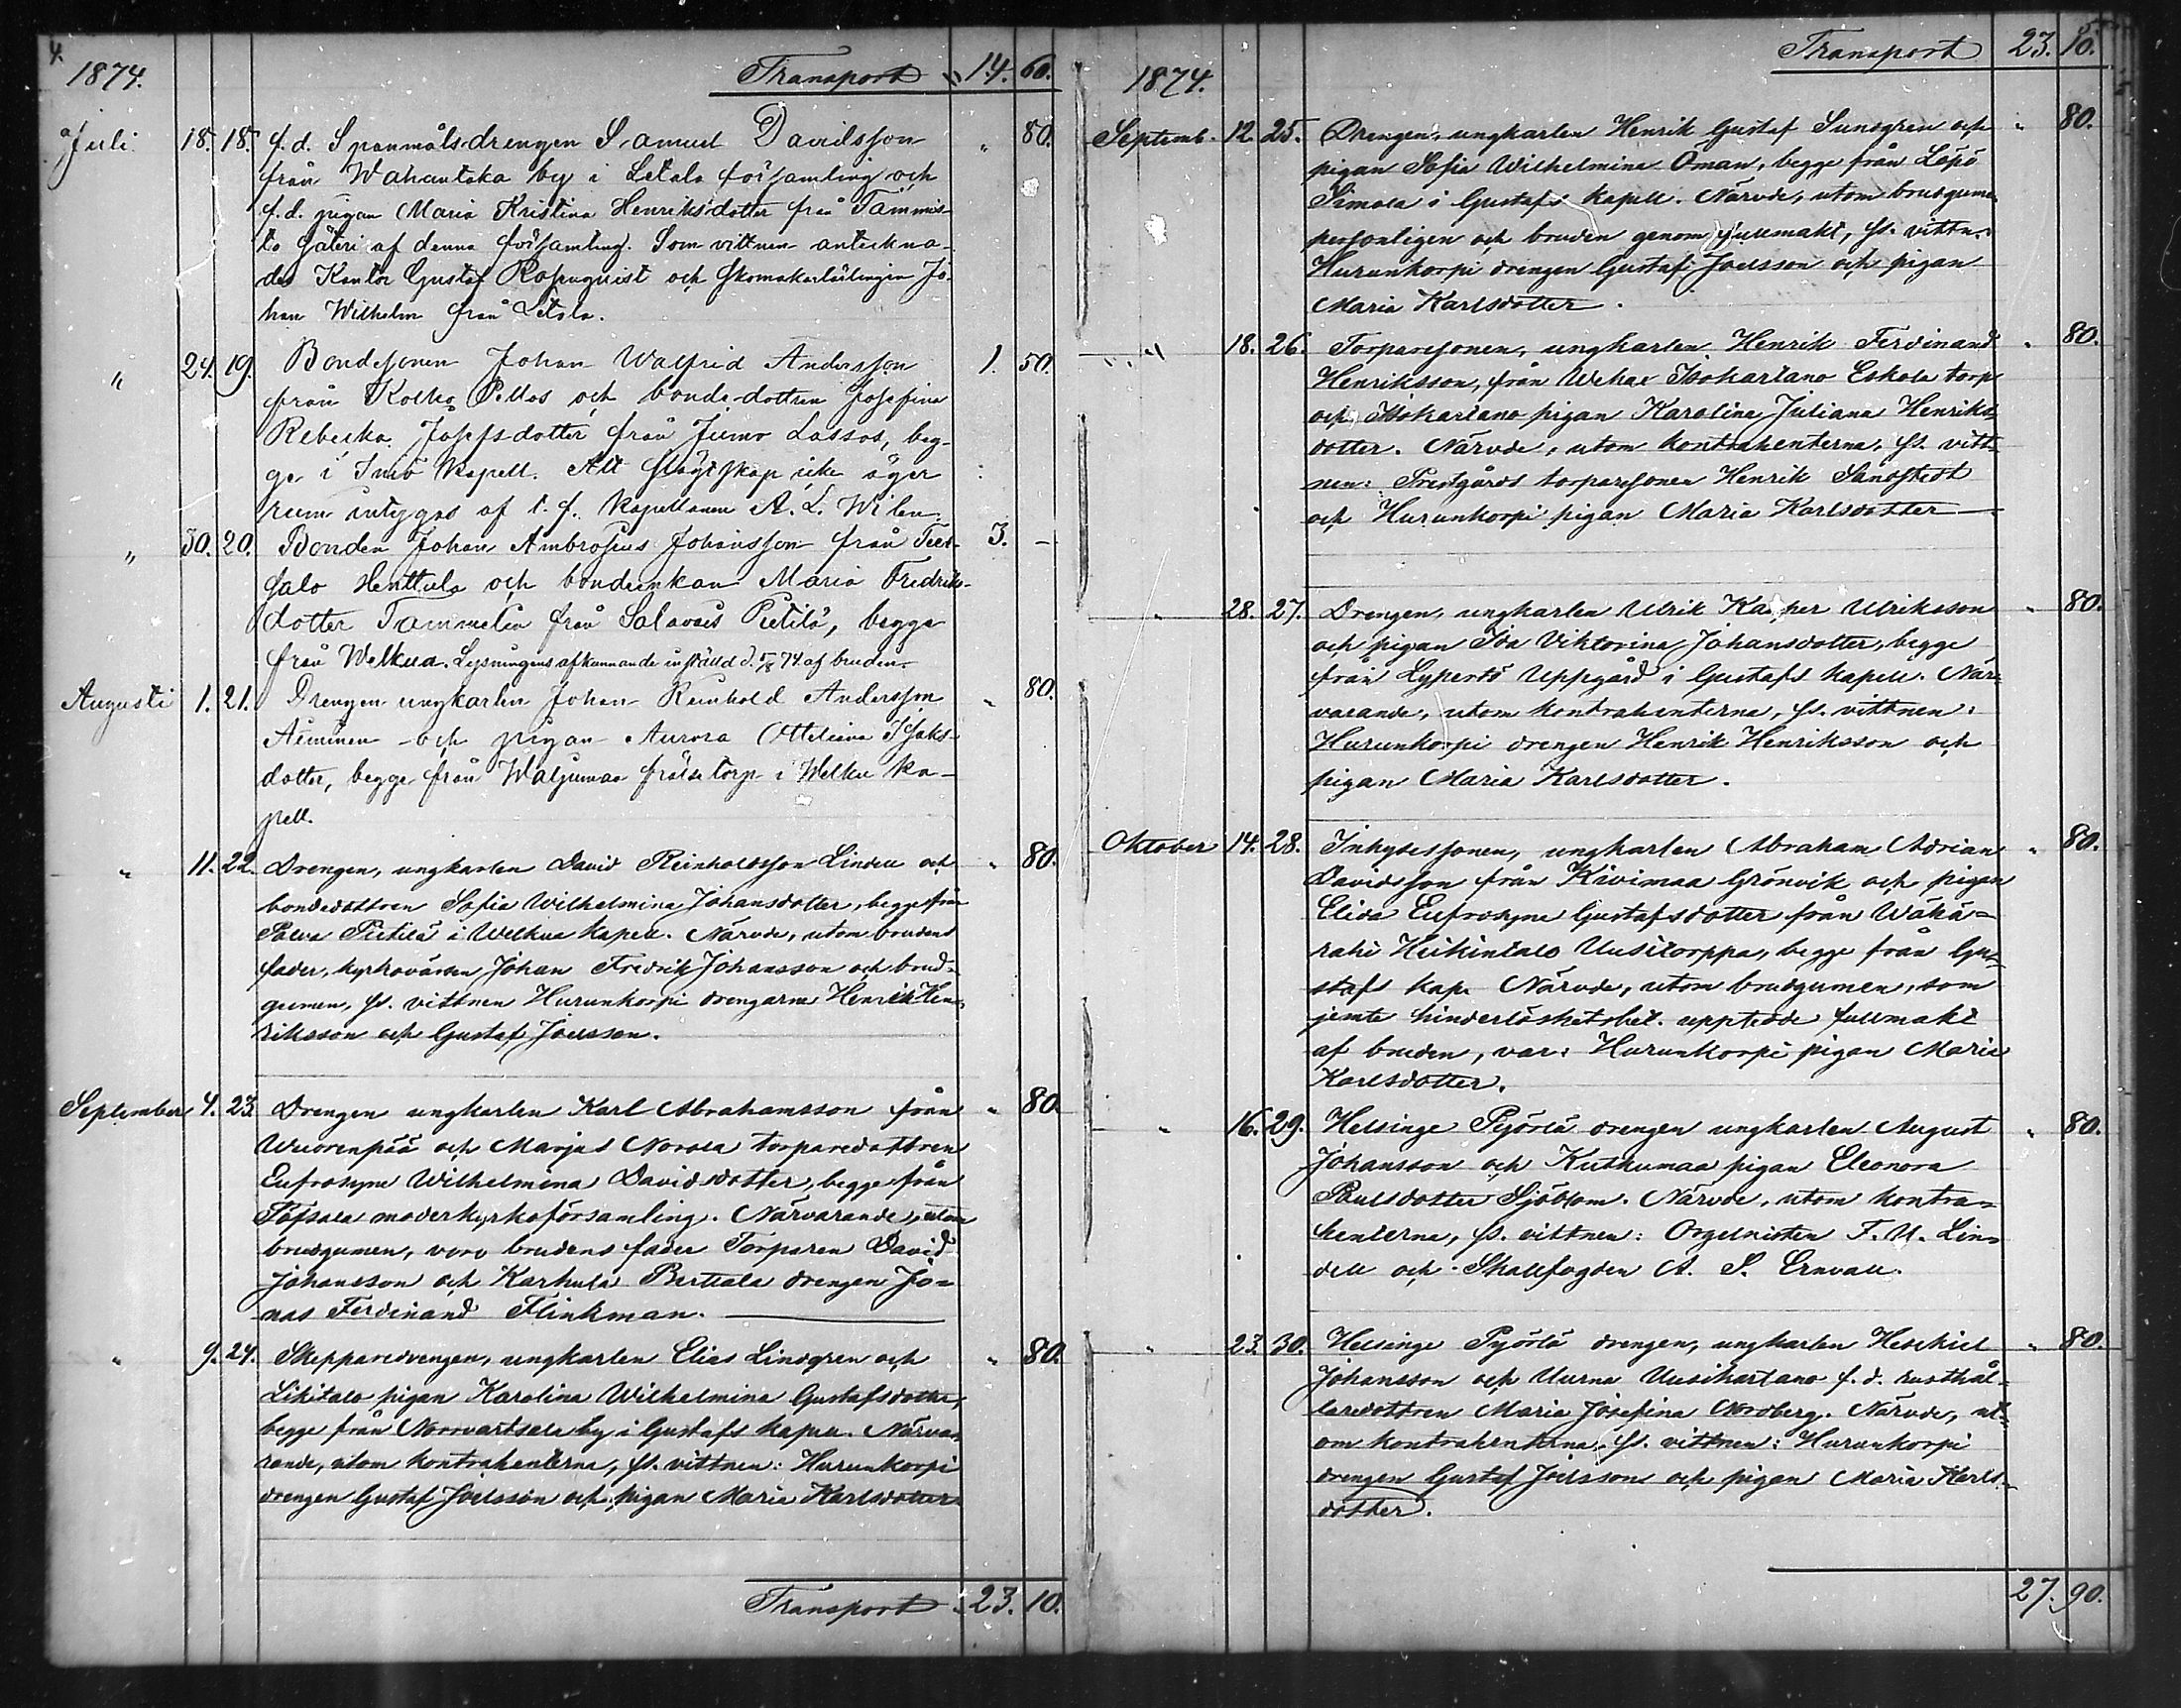 4.
1874.
Transport " 14. 60.
Juli 18. 18. f. d. Spanmålsdrengen Samuel Davidsson " 80.
från Wahantaka by i Letala församling och
f. d. pigan Maria Kristina Henriksdotter från Tammis-
to Säteri af denna församling. Som vittnen anteckna-
des Kantor Gustaf Rosenquist och Skomakarlärlingen Jo-
han Wilhelm från Letala.
" 24. 19. Bondesonen Johan Walfrid Andersson 1. 50.
från Kolko Pellos och bonde-dottren Josefina
Rebecka Josefsdotter från Jumo Lassos, beg-
ge i Iniö Kapell. Att slägtskap icke äger
rum intygas af t. f. Kapellanen A. L. Wilen.
" 30. 20. Bonden Johan Ambrosius Johansson från Teer- 3. -
salo Henttula och bondeenkan Maria Fredriks-
dotter Tammelin från Salavais Pietilä, begge
från Welkua. Lysningens afkunnande inställd d. 5/8 74 af bruden.
Augusti 1. 21. Drengen ungkarlen Johan Reinhold Andersson " 80.
Aiminen och pigan Aurora Ottiliana Isaks-
dotter, begge från Waljumaa frälsetorp i Welkua ka-
pell.
" 11. 22. Drengen, ungkarlen David Reinholdsson Lindell och " 80.
bondedottren Sofia Wilhelmina Johansdotter, begge från
Palva Pietilä i Welkua kapell. Närvde, utom brudens
fader, kyrkovärden Johan Fredrik Johansson och brud-
gumen, ss. vittnen Hurunkorpi drengarne Henrik Hen-
riksson och Gustaf Joelsson.
September 4. 23. Drengen ungkarlen Karl Abrahamsson från " 80.
Wuorenpää och Marjas Norola torparedottren
Eufrosyne Wilhelmina Davidsdotter, begge från
Töfsala moderkyrkoförsamling. Närvarande, utom
brudgumen, voro brudens fader Torparen David
Johansson och Karhula Berttala drengen Jo-
nas Ferdinand Flinkman.
" 9. 24. Skepparedrengen, ungkarlen Elias Lindgren och " 80.
Likitalo pigan Karolina Wilhelmina Gustafsdotter,
begge från Norrvartsala by i Gustafs kapell. Närva-
rande, utom kontrahenterna, ss. vittnen: Hurunkorpi
drengen Gustaf Joelsson och pigan Maria Karlsdotter
Transport 23. 10.
5.
1874.
Transport 23. 10.
Septemb. 12. 25. Drengen, ungkarlen Henrik Gustaf Sundgren och " 80.
pigan Sofia Wilhelmina Öman, begge från Löpö
Simola i Gustafs kapell. Närvde, utom brudgumen
personligen och bruden genom fullmakt, ss. vittn.:
Hurunkorpi drengen Gustaf Joelsson och pigan
Maria Karlsdotter.
" 18. 26. Torparesonen, ungkarlen Henrik Ferdinand " 80.
Henriksson, från Wehas Isokartano Eskola torp
och Isokartano pigan Karolina Juliana Henriks-
dotter. Närvde, utom kontrahenterna, ss. vitt-
nen: Prestgårds torparesonen Henrik Sandstedt
och Hurunkorpi pigan Maria Karlsdotter
" 28. 27. Drengen, ungkarlen Ulrik Kasper Ulriksson " 80.
och pigan Ida Viktorina Johansdotter, begge
från Lypertö Uppgård i Gustafs kapell. När-
varande, utom kontrahenterna, ss. vittnen:
Hurunkorpi drengen Henrik Henriksson och
pigan Maria Karlsdotter.
Oktober 14. 28. Inhysessonen, ungkarlen Abraham Adrian " 80.
Davidsson från Kivimaa Grönvik och pigan
Elida Eufrosyne Gustafsdotter från Wähä-
rahi Heikintalo Uusitorppa, begge från Gu-
stafs kap. Närvde, utom brudgumen, som
jemte hinderlöshetsbet. upptedde fullmakt
af bruden, var: Hurunkorpi pigan Maria
Karlsdotter.
" 16. 29. Helsinge Pyörlä drengen ungkarlen August " 80.
Johansson och Kuthumaa pigan Eleonora
Paulsdotter Sjöblom. Närvde, utom kontra-
henterna, ss. vittnen: Orgelnisten F. U. Lin-
dell och Skallfogden A. S. Ernvall.
" 23. 30. Helsinge Pyörlä drengen, ungkarlen Heschiel " 80.
Johansson och Uurna Uusikartano f. d. rusthål-
laredottren Maria Josefina Nordberg. Närvde, ut-
om kontrahenterna, ss. vittnen: Hurunkorpi
drengen Gustaf Joelsson och pigan Maria Karls-
dotter.
27. 90.